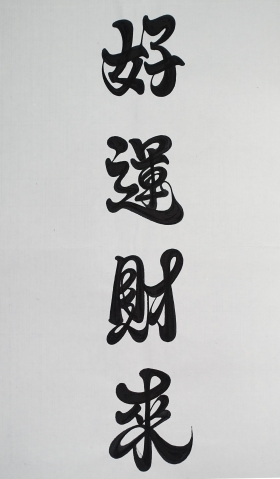 好運財來